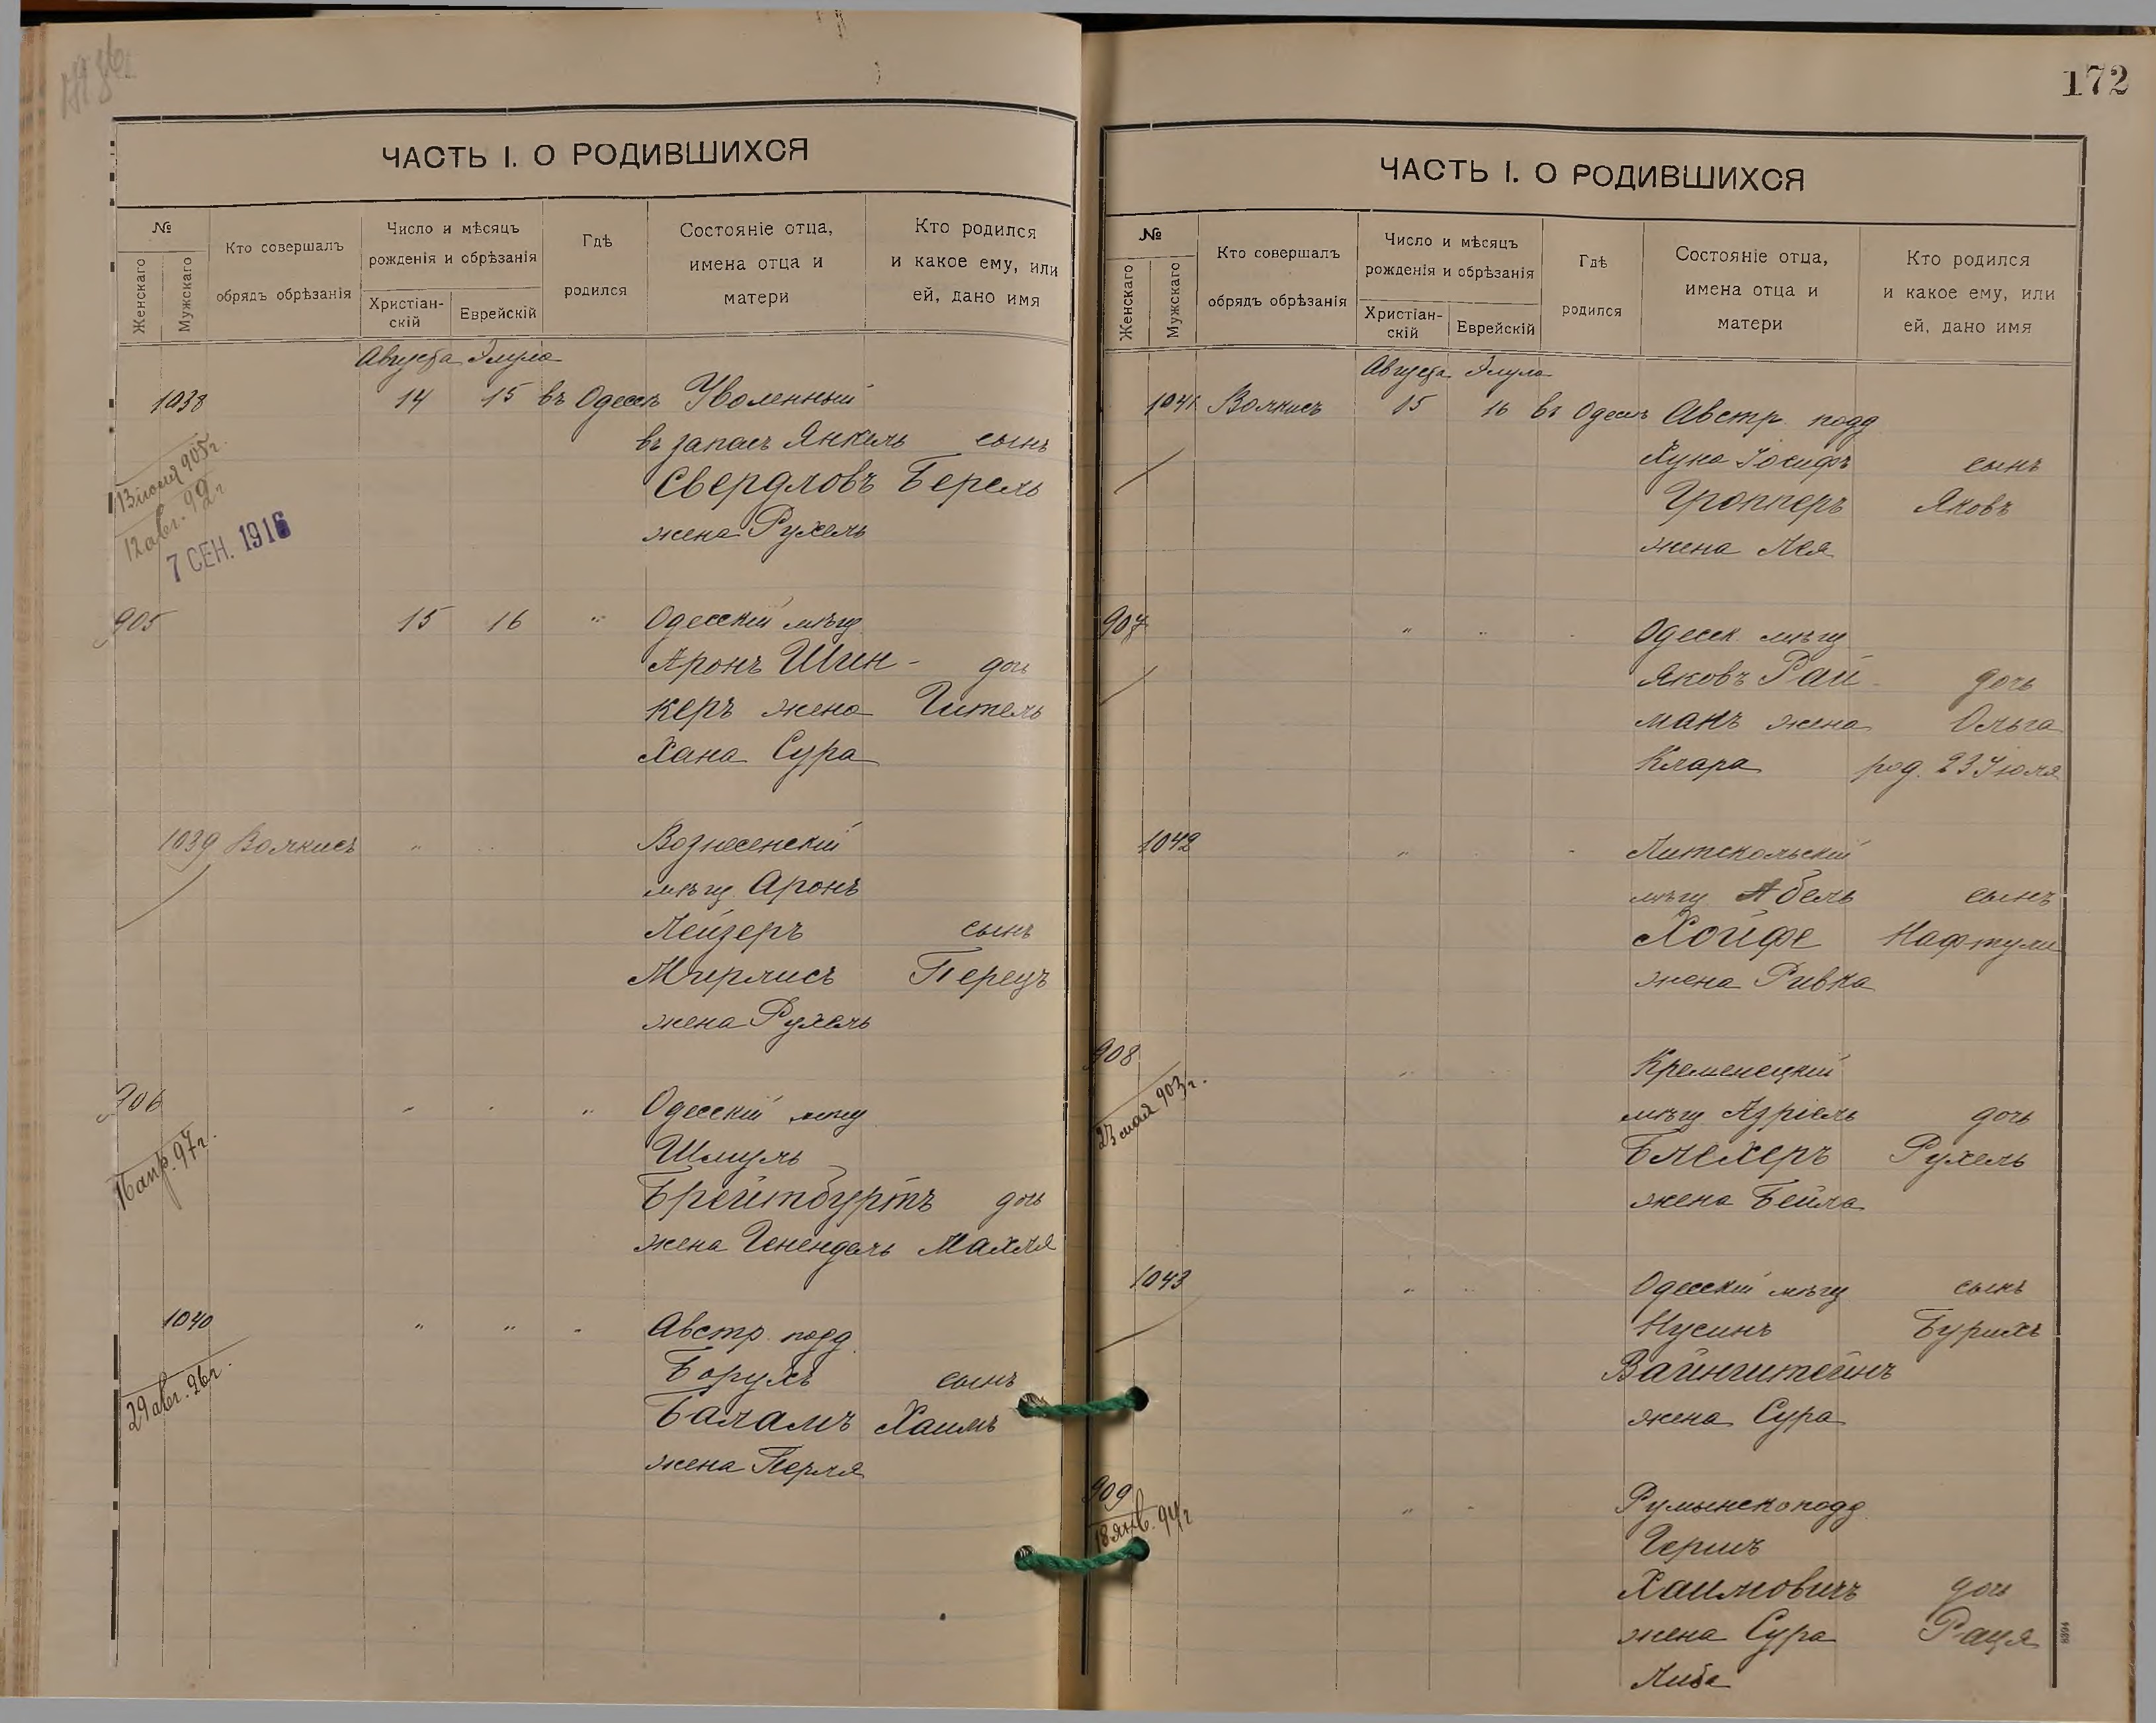 ЧАСТЬ I. О РОДИВШИХСЯ
№
Женскаго
Мужскаго
Кто совершалъ
обрядъ обрѣзанія
Число и мѣсяцъ
рожденія и обрѣзанія
Христіан-
скій
Еврейскій
Гдѣ
родился
Состояніе отца,
имена отца и
матери
Кто родился
и какое ему, или
ей, дано имя
Августа Элула
1038 14 15 въ Одессѣ Уволенный
въ запасъ Янкель сынъ
Свердловъ Берель
жена Рухель
13 іюня 905 г.
12 авг. 99 г
7 СЕН. 1916
905 15 16 " Одесскій мѣщ
Аронъ Шин- дочь
керъ жена Гитель
Хана Сура
1039 Волкисъ " Вознесенскій
мѣщ. Аронъ
Лейзеръ сынъ
Мирлисъ Перецъ
жена Рухель
906 " " Одесскій мѣщ
Шмуль
Брейтбуртъ дочь
жена Генендель Махля
16 апр. 97 г.
1040 " " Австр. подд.
Борухъ сынъ
Баламъ Хаимъ
жена Перля
29 авг. 26 г.
172
ЧАСТЬ I. О РОДИВШИХСЯ
№
Женскаго
Мужскаго
Кто совершалъ
обрядъ обрѣзанія
Число и мѣсяцъ
рожденія и обрѣзанія
Христіан-
скій
Еврейскій
Гдѣ
родился
Состояніе отца,
имена отца и
матери
Кто родился
и какое ему, или
ей, дано имя
Августа Элула
1041 Волкисъ 15 16 въ Одессѣ Австр. подд
Хуна Іосифъ сынъ
Гропперъ Яковъ
жена Лея
907 " " Одесск. мѣщ
Яковъ Рай- дочь
манъ жена Ольга
Клара род. 23 Іюля
1042 " Литскольскій
мѣщ Абель сынъ
Хойфе Нафтули
жена Ривка
908 " Кременецкій
мѣщ Азріель дочь
Блехеръ Рухель
жена Бейла
23 мая 903 г.
1043 " Одесскій мѣщ сынъ
Нусинъ Бурихъ
Вайнштейнъ
жена Сура
909 " Румынскоподд.
Гершъ
Хаимовичъ дочь
жена Сура Рася
Либа
18 янв. 94 г